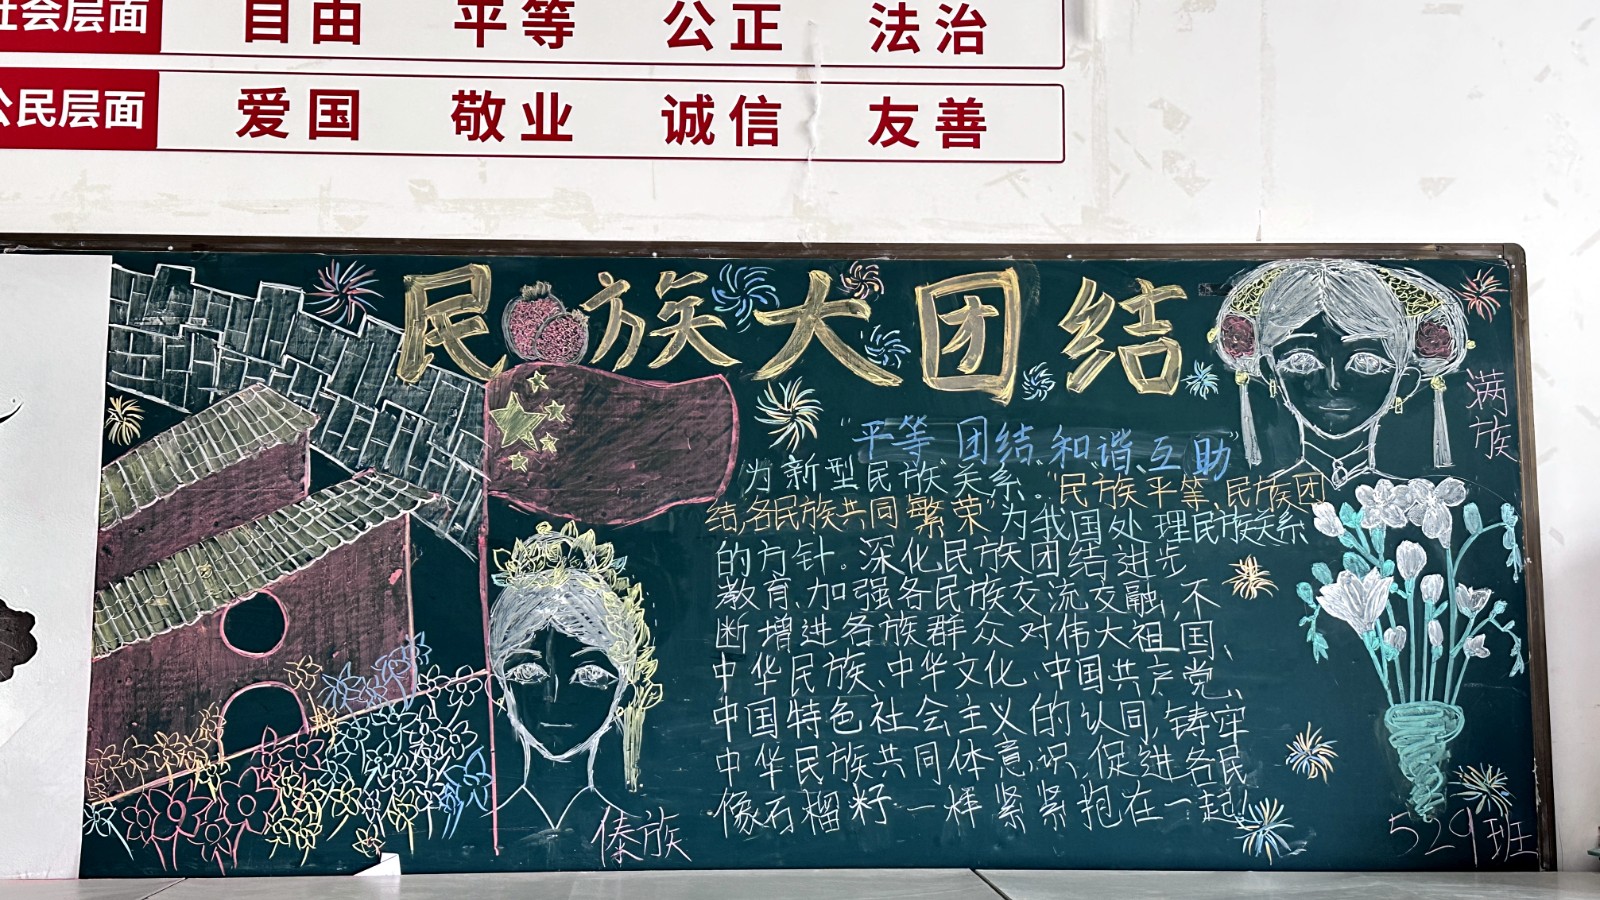 社会层面 自由 平等 公正 法治
公民层面 爱国 敬业 诚信 友善
民族大团结
"平等、团结、和谐、互助"
为新型民族关系。"民族平等、民族团
结,各民族共同繁荣"为我国处理民族关系
的方针。深化民族团结进步
教育、加强各民族交流交融,不
断增进各族群众对伟大祖国、
中华民族、中华文化、中国共产党、
中国特色社会主义的认同,铸牢
中华民族共同体意识,促进各民
像石榴籽一样紧紧抱在一起!
满族
傣族
529班